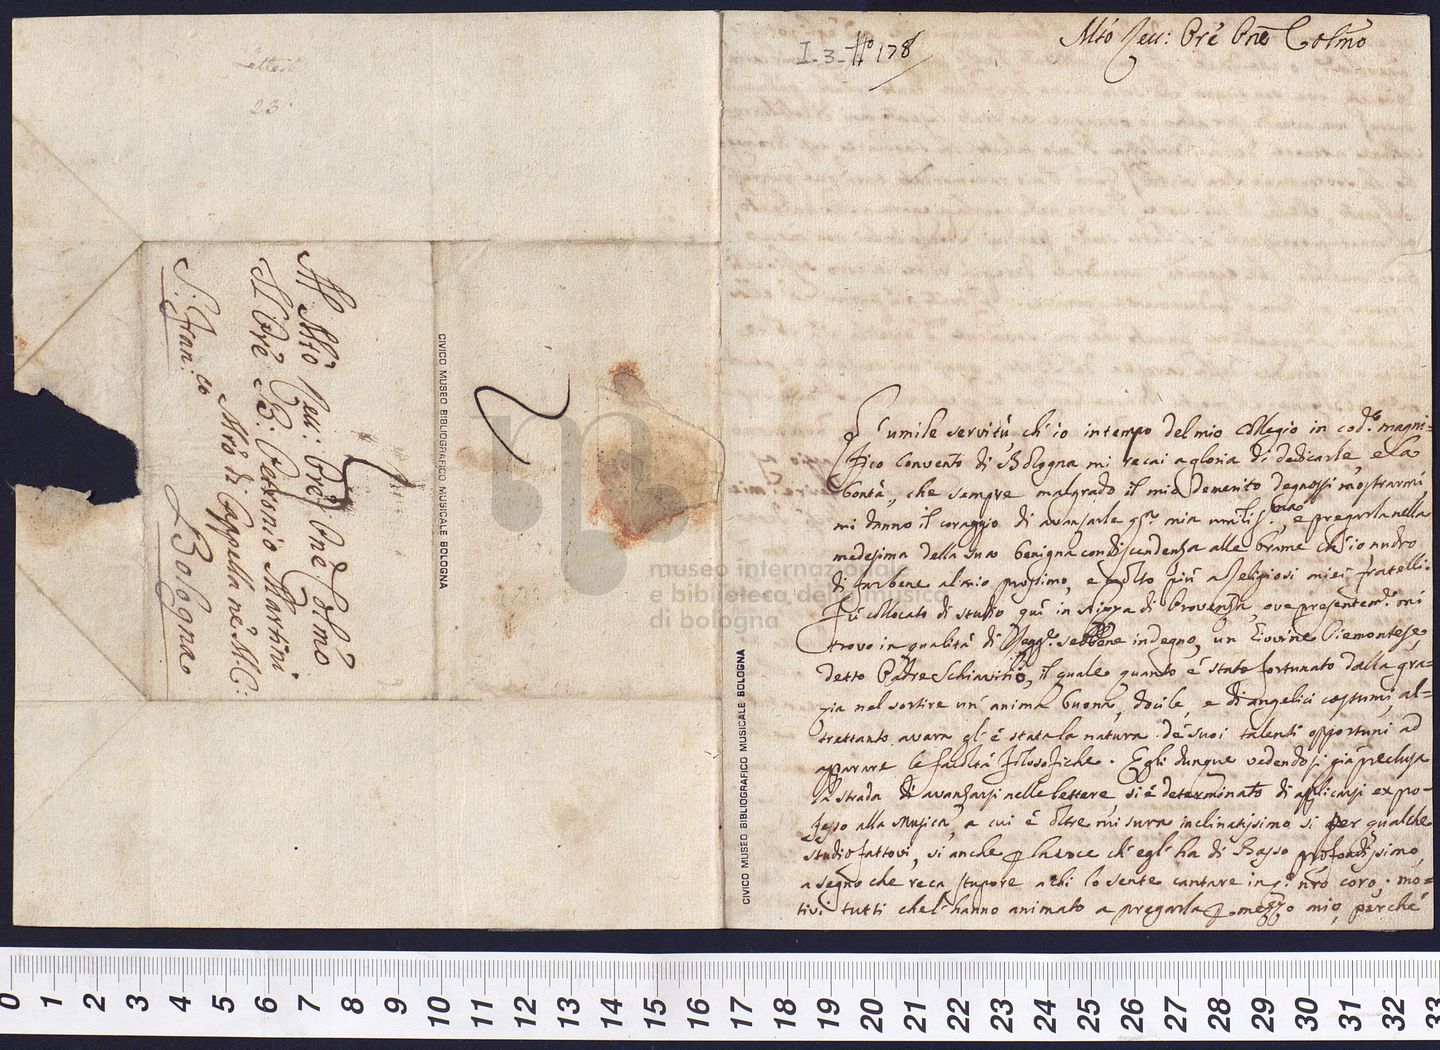 Lettere
23
Al Mto Reu: Pre Pne Colmo
Il Pre F. B: Petronio Martini
Mro di Cappella ne' M. C:
S. Fran:co
Bologna
CIVICO MUSEO BIBLIOGRAFICO MUSICALE BOLOGNA
museo internazionale
e biblioteca della musica
di bologna
I-3-
178
Mto Reu: Pre Pne Colmo
L'umile servitù ch'io in tempo del mio Collegio in cod.o magni-
fico Convento di Bologna mi recai a gloria di dedicarle, e la
bontà, che sempre malgrado il mio demerito degnossi mostrarmi,
mi danno il coraggio di avanzarle e pregarla nella
medesima della sua benigna condiscendenza alle brame ch'io nudro
di far bene al mio prossimo, e molto più a Religiosi miei fratelli.
Fù collocato di studio quì in Nizza di Provenza, ove presentem.e mi
trovo in qualità di Regg.e sebbene indegno, un Giovine Piemontese,
detto Padre Schiavini, il quale quanto è stato fortunato dalla gra-
zia nel sortire un' anima buona, docile, e di angelici costumi, al-
trettanto avara gl' è stata la natura de' suoi talenti opportuni ad
apparare le facoltà filosofiche. Egli dunque vedendosi già preclusa
la strada di avanzarsi nelle lettere, si è determinato di applicarsi ex pro-
fesso alla Musica, a cui è oltre misura inclinatissimo sì per qualche
studio fattovi, sì anche p la voce ch' egl' ha di Basso profondissimo,
a segno che reca stupore a chi lo sente cantare in q.o nro coro; mo-
tivi tutti che l' hanno animato a pregarla p mezzo mio, perchè
CIVICO MUSEO BIBLIOGRAFICO MUSICALE BOLOGNA
0 1 2 3 4 5 6 7 8 9 10 11 12 13 14 15 16 17 18 19 20 21 22 23 24 25 26 27 28 29 30 31 32 33